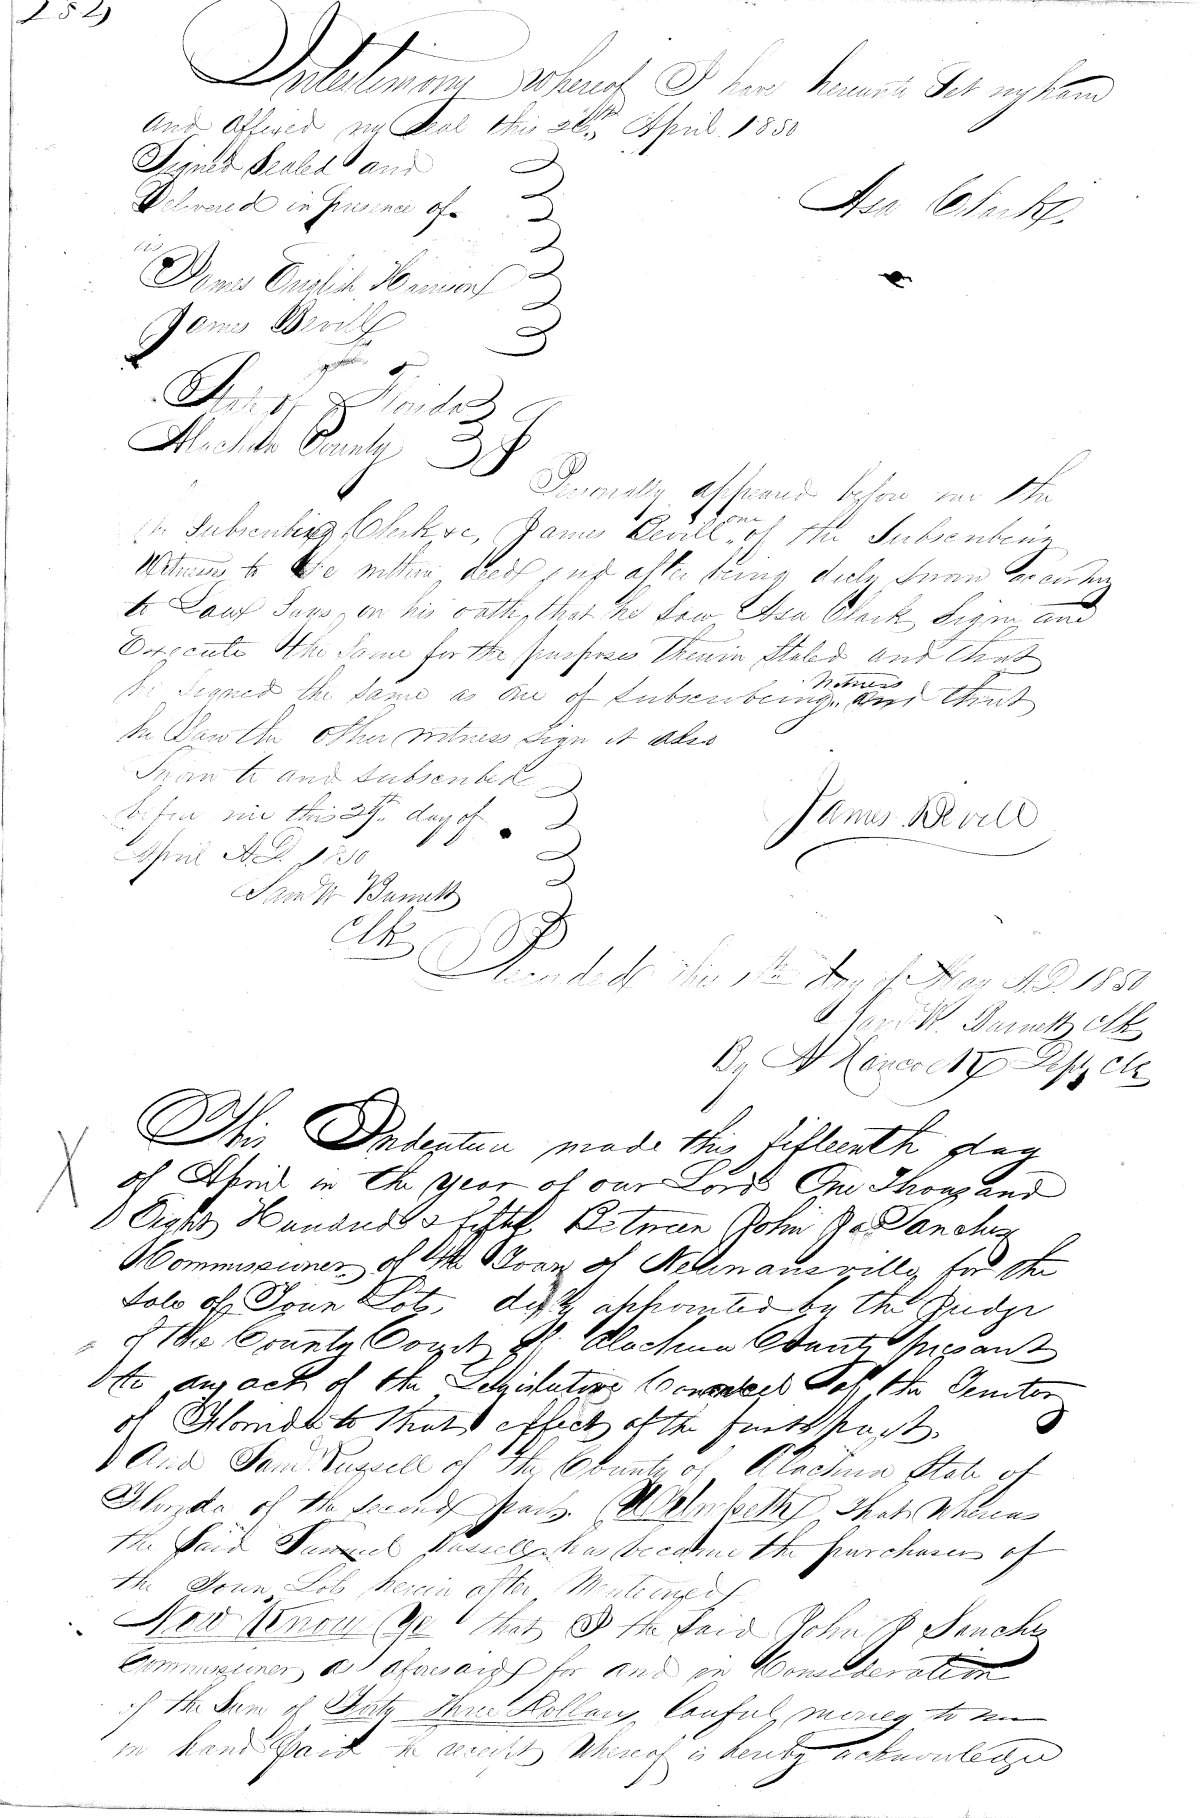 252
In testimony whereof I have hereunto Set my hand
and Affixed my Seal this 26th April 1850
Signed Sealed and
Delivered in presence of
Asa Clark
his
James English
James Bevill
State of Florida
Alachua County
Personally appeared before me the
Subscribing Clerk &c, James Bevill one of the Subscribeing
Witness to the within deed and after being duly Sworn according
to Law Says, on his oath, that he Saw Asa Clark Sign and
Execute the Same for the purposes therein Stated and that
he Signed the Same as one of Subscribeing Witness and that
he Saw the other witness Sign it also
Sworn to and Subscribed
before me this 29th day of
April A.D. 1850
James Bevill
Saml W Burnett
Clk
Recorded this 1st day of May A.D. 1850
Saml W. Burnett Clk
By Hancock Depty Clk
This Indenture made this fifteenth day
of April in the year of our Lord One Thousand
Eight Hundred & fifty Between John R Sanchez
Commissioner of the Town of Newnansville for the
Sale of Town Lots, duly appointed by the Judge
of the County Court of Alachua County Pursuant
to an act of the Legislative Council of the Territory
of Florida to that effect of the first part.
And Saml Russell of the County of Alachua State of
Florida of the Second part. Witnesseth, That Whereas
the Said Samuel Russell has become the purchaser of
the Town Lots herein after Mentioned
Now Know Ye that I the Said John R Sanchez
Commissioner as aforesaid for and in Consideration
of the Sum of Forty three Dollars, lawful money to me
in hand Paid the receipt whereof is hereby acknowledged